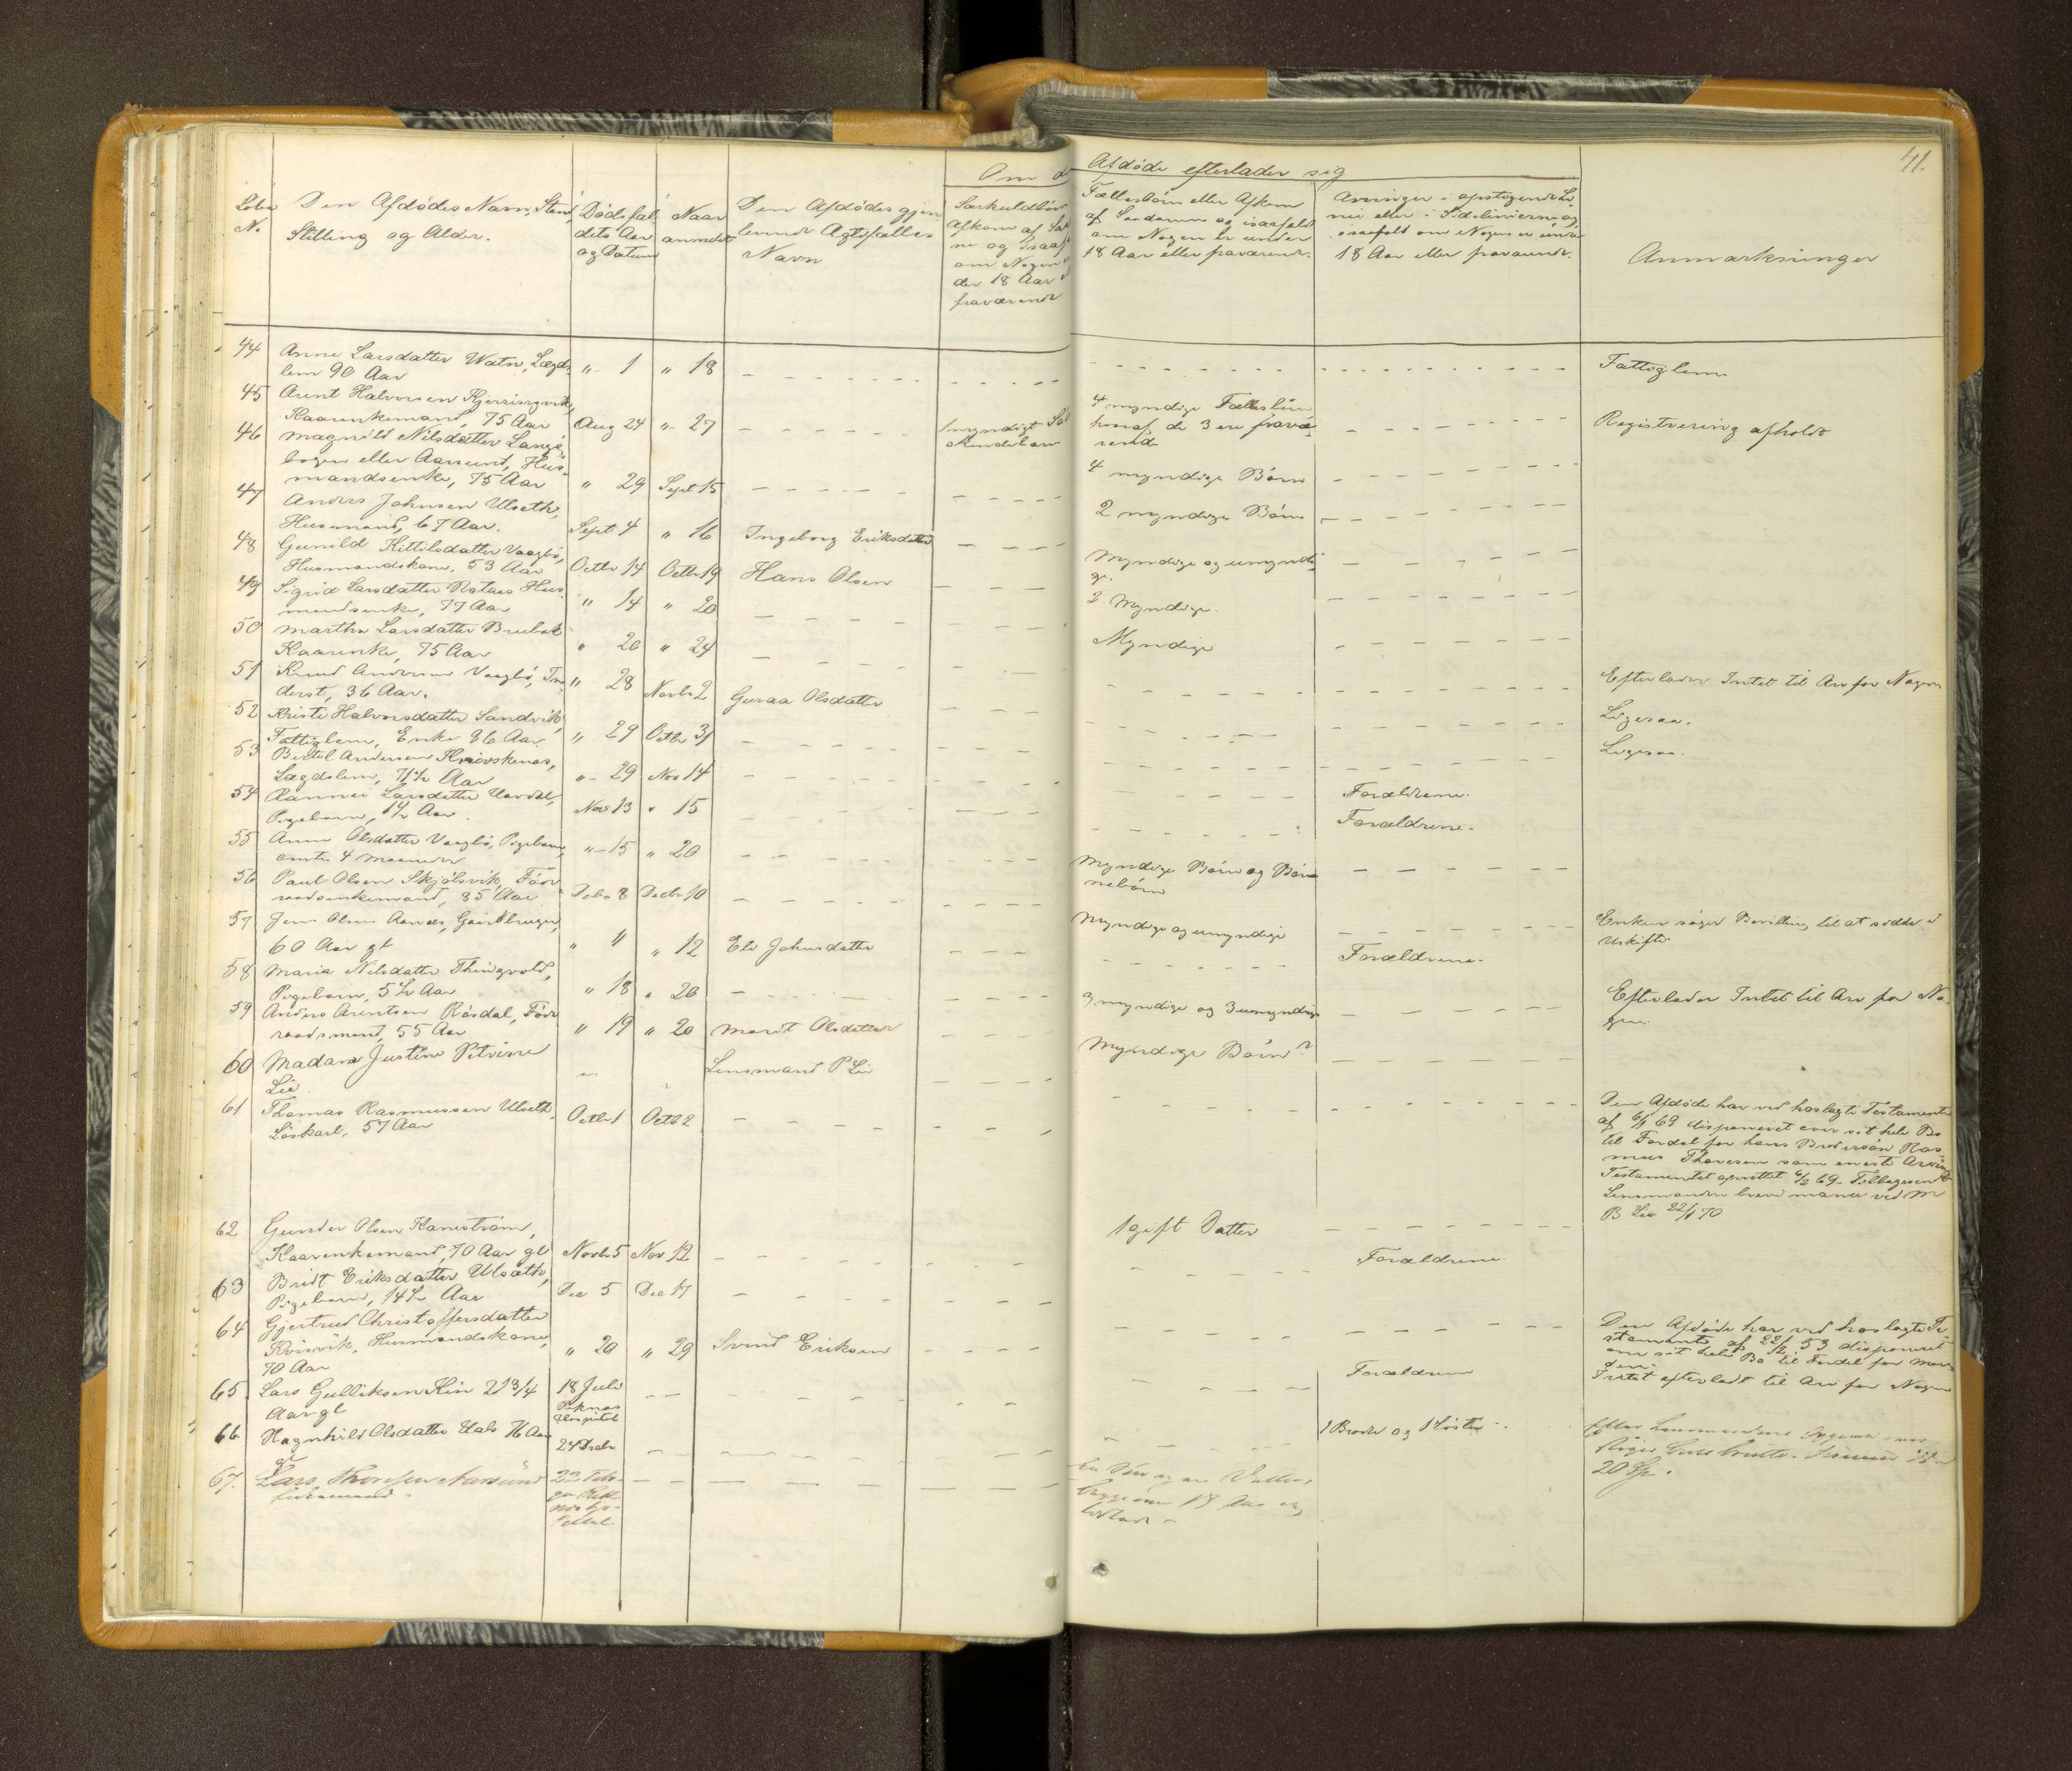 41.
Om de Afdøde efterlader sig
Løbe
No
Den Afdødes Navn, Stand,
Stilling og Alder.
Dødsfal
dets Aar
og Datum
Naar
anmeldt
Den Afdødes gjen
levende Ægtefælles
Navn
Særkuldbørn
Afkom af
ne og isaaf
om Nogen
der 18 Aar
fraværende
Fællesbørn eller Afkom
af Saadanne og isaafald
om Nogen er under
18 Aar eller fraværende.
Arvinger i opstigende Li-
nie eller i Sidelinierne og
isaafald om Nogen er under
18 Aar eller fraværende.
Anmærkninger
44 Anne Larsdatter Watn, Lægds
lem 90 Aar " 1 " 18 Fattiglem
45 Arent Halvorsen Kjerringvik,
Kaarenkemand, 75 Aar Aug 24 " 27
1 myndigt
4 myndige Fællesbørn
hvoraf de 3 ere fravæ
rende
Registrering afholdt
46 Magnild Nilsdatter Langø
bogen eller Aarsund, Hus-
mandsenke, 75 Aar " 29 Sept 15 4 myndige Børn
47 Anders Johnsen Ulseth,
Husmand, 67 Aar. Sept 4 " 16 Ingeborg Eriksdatter 2 myndige Børn
48 Gunild Kittilsdatter Vaagbø,
Husmandskone, 53 Aar Octbr 14 Octbr 19 Hans Olsen Myndige og umyndi
ge.
49 Sigrid Larsdatter Rotnes Hus-
mandsenke, 77 Aar " 14 " 20 2 Myndige.
50 Martha Larsdatter Brubak
Kaarenke, 75 Aar " 20 " 24 Myndige
51 Knud Andersen Vaagbø, In-
derst, 36 Aar. " 28 Novbr 2 Guraa Olsdatter Efterlader Intet til Arv for Nogen
52 Kristi Halvorsdatter Sandvik,
Fattiglem, Enke 86 Aar " 29 Octbr 31 Ligesaa.
53 Bertel Andersen
Lægdslem, 71½ Aar " 29 Nov 14 Ligesaa.
54 Rannei Larsdatter
Pigebarn, 1½ Aar. Nov 13 " 15 Forældrene.
55 Anne Olsdatter Vaagbø, Pigebarn,
omtr 4 Maaneder " 15 " 20 Forældrene.
56 Paul Olsen Skjølsvik, Føde
raadsenkemand, 85 Aar Decbr 8 Decbr 10 Myndige Børn og Bør
nebørn
57 Jens Olsen Aandes, Gaardbruger,
60 Aar gl " " " 12 Eli Johnsdatter Myndige og umyndige
Enken søger Bevilling til at sidde i
Uskifte.
58 Maria Nilsdatter Thingvold,
Pigebarn, 5½ Aar " 18 " 20 Forældrene.
59 Anders Arentsen Røsdal, Føde
raadsmand, 55 Aar " 19 " 20 Marit Olsdatter 3 myndige og 3 umyndige
Efterlader Intet til Arv for No-
gen.
60 Madam Justine Petrine
Lie Lensmand P Lie Myndige Børn?
61 Thomas Rasmussen Ulseth
Løskarl, 57 Aar Octbr 1 Octbr 2
Den Afdøde har ved hoslagte Testamente
af 69 disponeret over sit hele Bo
til Fordel for hans Brodersøn Ras-
mus Thoresen som eneste Arving
Testamentet oprettet 69. Tilbagesendt
Lensmanden brevi manu ved M
B Lie 22/1 70
62 Gunder Olsen Kanestrøm,
Kaarenkemand, 70 Aar gl Novbr 5 Nov 12 1 gift Datter
63 Bridt Eriksdatter Ulsæth,
Pigebarn, 14½ Aar Dec 5 Dec 17 Forældrene
64 Gjertrud Christoffersdatter
Kvisvik, Husmandskone,
70 Aar " 20 " 29 Svend Eriksen
Den Afdøde har ved hoslagte Te-
stamente af 22/12 53 disponeret
om sit hele Bo til Fordel for Man
den.
65 Lars Gulliksen Hin 21 3/4
Aar gl 18 Juli
Reknæs
Hospital
Forældrene Intet efterladt til Arv for Nogen
66 Magnhild Olsdatter Hals 76 Aar
gl 24 Decbr 1 Broder og 1 Søster
20 Sp.
67. Lars Thoresen Aarsund
22 Febr.
18 Aar og